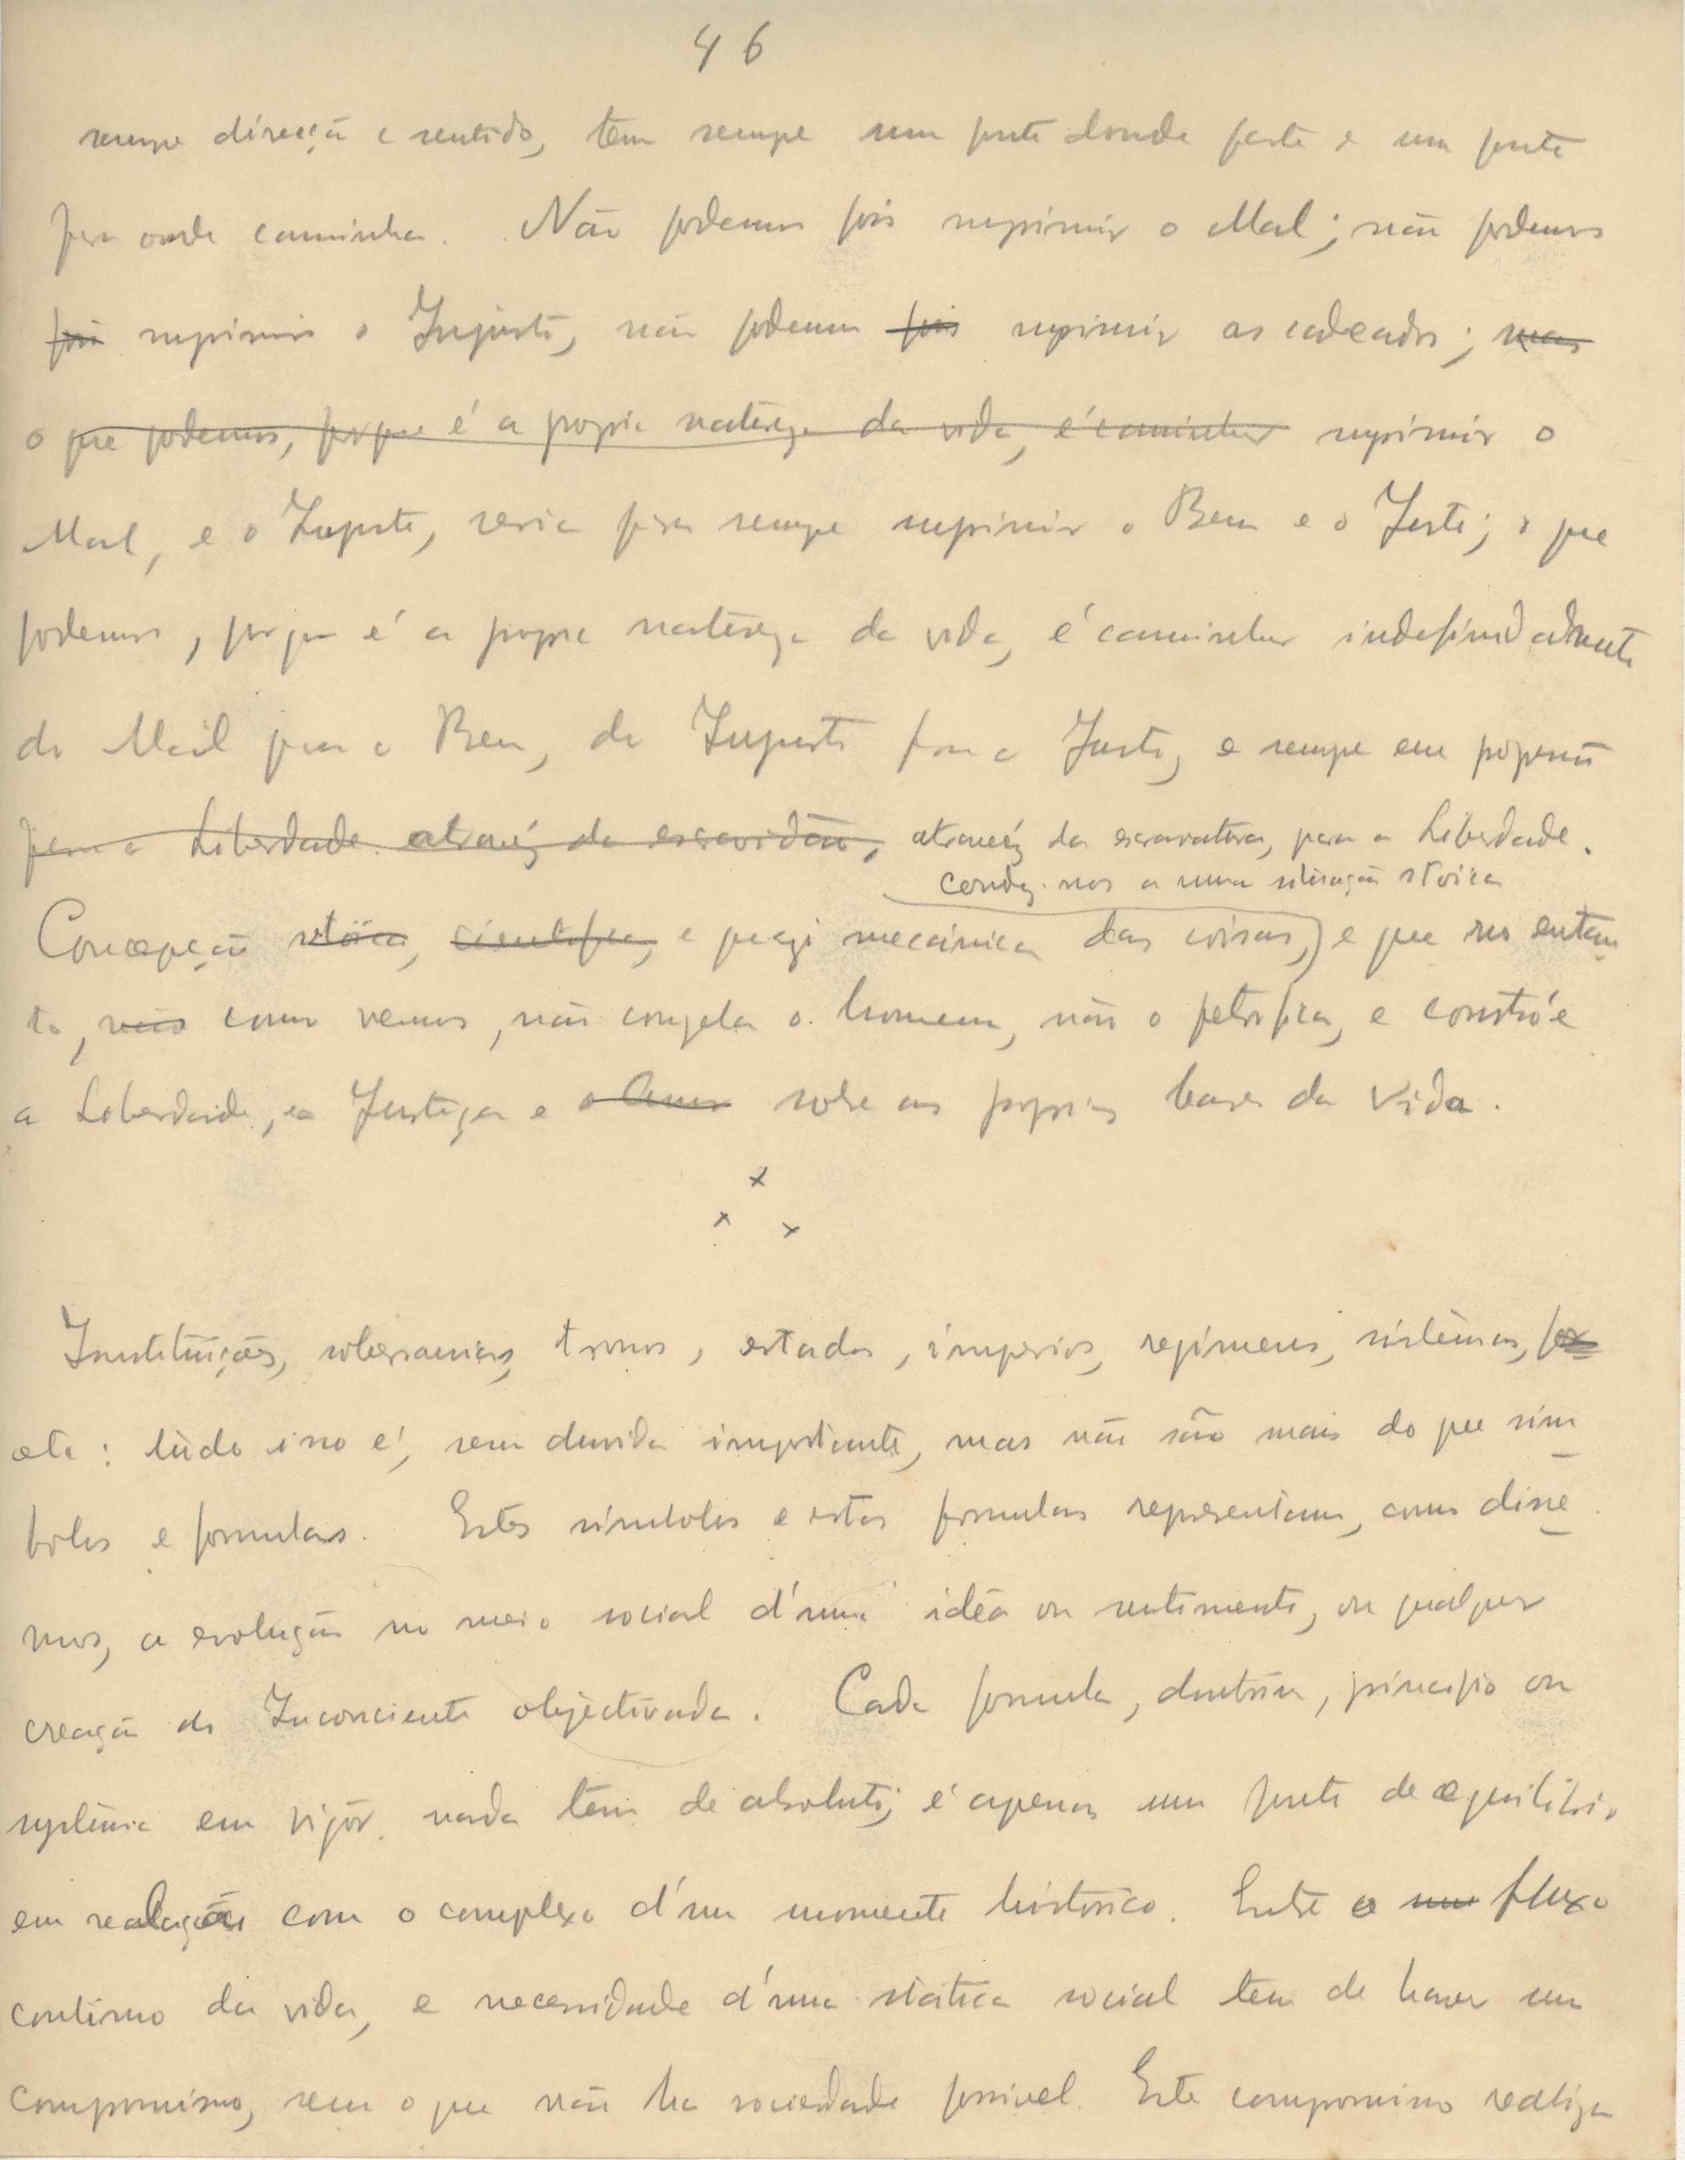 46
sempre direcção e sentido, tem sempre um ponto donde parte e um ponto
para onde caminha. Não podemos pois suprimir o Mal; não podemos
pois suprimir o Injusto, não podemos pois suprimir as cadeados; mas
o que podemos, porque é a propria natureza da vida, é caminhar suprimir o
Mal, e o Injusto, seria para sempre suprimir o Bem e o Justo; o que
podemos, porque é a propria natureza da vida, é caminhar indefinidamente
do Mal para o Bem, do Injusto para o Justo, e sempre em
para a Liberdade através da escravidão, através da escravatura, para a Liberdade.
conduz-nos a uma situação stoica
Concepção stoica, cientifica, e quazi mecánica das coisas, e que no entan
to, como vemos, não congela o homem, não o petrifica, e constróe
a Liberdade, e a Justiça e o Amor sobre as proprias bases da Vida.
x
x x
Instituições, soberanias, tronos, estados, imperios, regimens, sistêmas,
etc: tudo isso é, sem duvida importante, mas não são mais do que sim
bolos e formulas. Estes simbolos e estas formulas representam, como disse
mos, a evolução no meio social d'uma idéa ou sentimento, ou qualquer
creação do Inconsciente objectivada. Cada formula, doutrina, principio ou
systêma em vigôr nada têm de absoluto; é apenas um ponto de equilibrio
em realação com o complexo d'um momento histórico. Entre o um fluxo
continuo da vida, e necessidade d'uma stática social tem de haver um
compromisso, sem o que não ha sociedade possivel. Este compromisso realiza